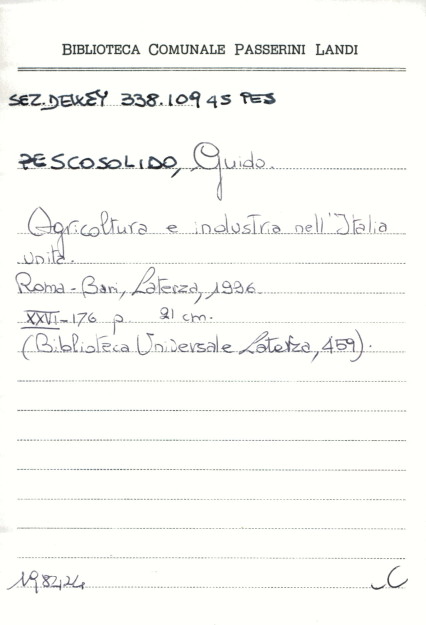 BIBLIOTECA COMUNALE PASSERINI LANDI
SEZ. DEWEY 338.10945 PES
PESCOSOLIDO, Guido.
Agricoltura e industria nell'Italia
unita.
Roma-Bari, Laterza, 1996.
XXVI-176 p. 21 cm.
(Biblioteca Universale Laterza, 459).
198424
C